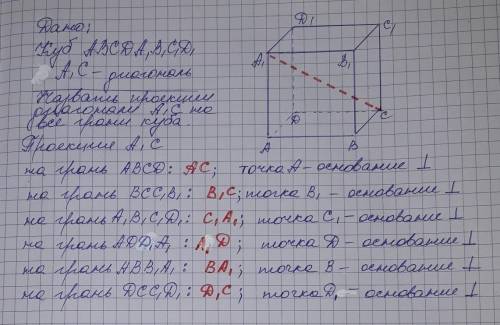 Дано:
Куб ABCDA₁B₁C₁D₁
A₁C – диагональ
Назвать проекции
диагонали A₁C на
все грани куба.
Проекция A₁C
на грань ABCD: AC; точка A – основание ⊥
на грань BCC₁B₁: B₁C; точка B₁ – основание ⊥
на грань A₁B₁C₁D₁: C₁A₁; точка C₁ – основание ⊥
на грань ADD₁A₁: A₁D; точка D – основание ⊥
на грань ABB₁A₁: BA₁; точка B – основание ⊥
на грань DCC₁D₁: D₁C; точка D₁ – основание ⊥
D₁
C₁
A₁
B₁
D
C
A
B